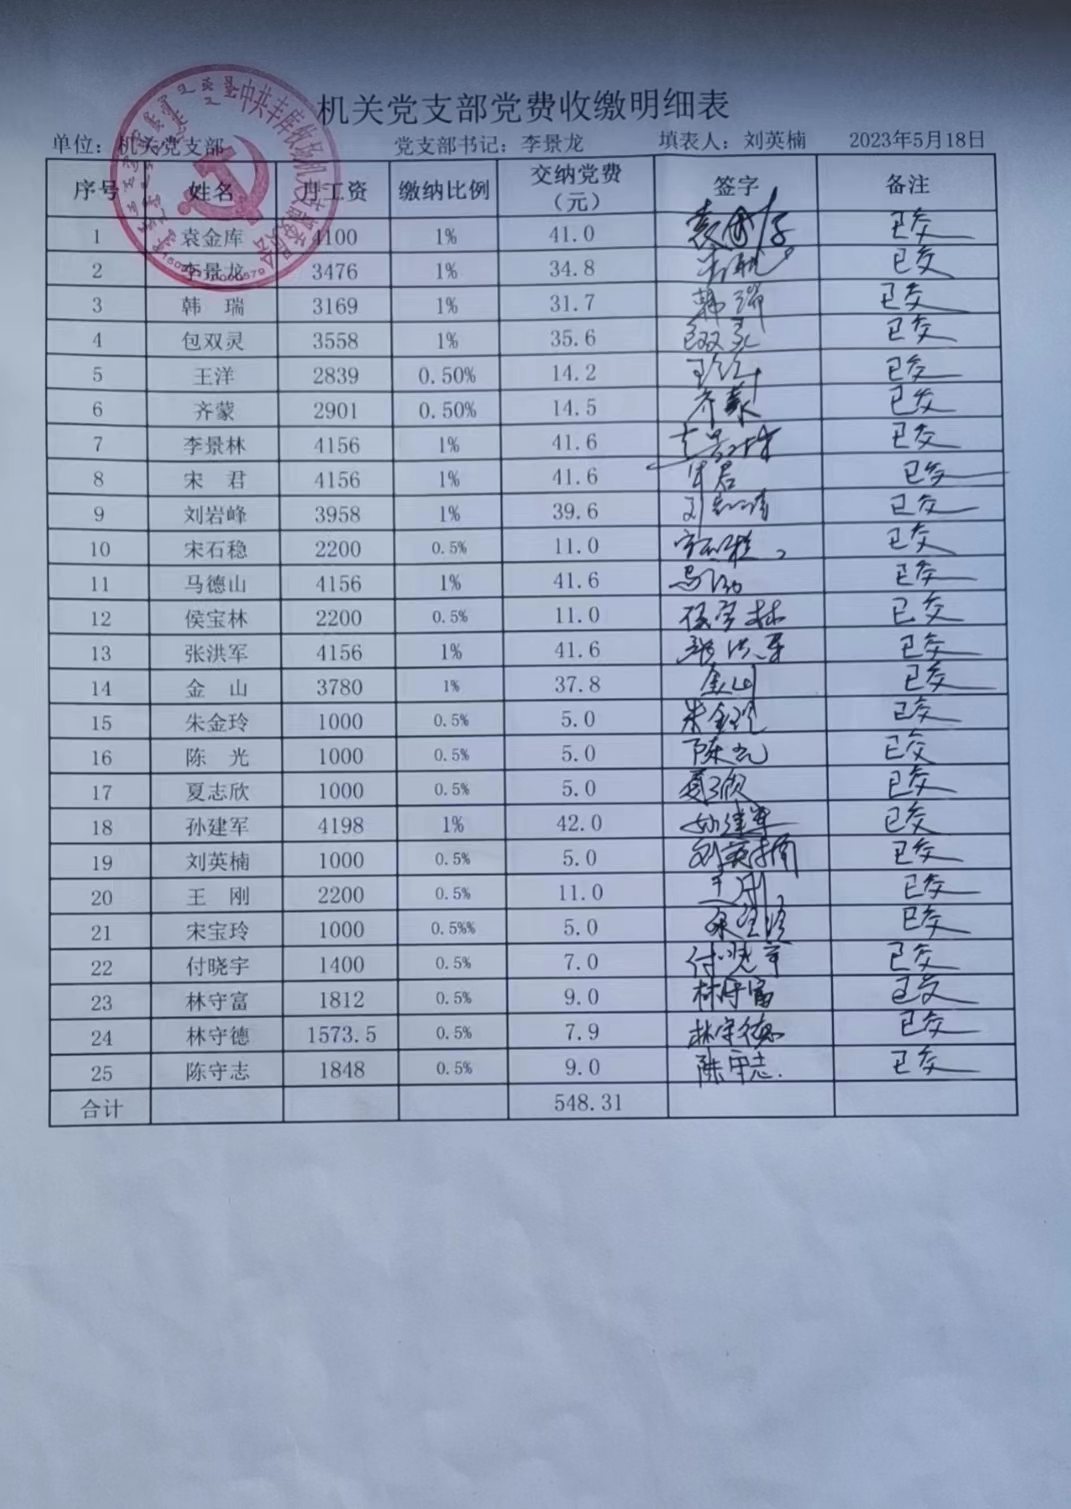 机关党支部党费收缴明细表
单位：机关党支部 党支部书记：李景龙 填表人：刘英楠 2023年5月18日
序号 姓名 月工资 缴纳比例 交纳党费（元） 签字 备注
1 袁金库 4100 1% 41.0 已交
2 李景龙 3476 1% 34.8 已交
3 韩 瑞 3169 1% 31.7 韩瑞 已交
4 包双灵 3558 1% 35.6 包双灵 已交
5 王洋 2839 0.50% 14.2 已交
6 齐蒙 2901 0.50% 14.5 齐蒙 已交
7 李景林 4156 1% 41.6 李景林 已交
8 宋 君 4156 1% 41.6 宋君 已交
9 刘岩峰 3958 1% 39.6 已交
10 宋石稳 2200 0.5% 11.0 宋石稳 已交
11 马德山 4156 1% 41.6 已交
12 侯宝林 2200 0.5% 11.0 侯宝林 已交
13 张洪军 4156 1% 41.6 张洪军 已交
14 金 山 3780 1% 37.8 金山 已交
15 朱金玲 1000 0.5% 5.0 朱金玲 已交
16 陈 光 1000 0.5% 5.0 陈光 已交
17 夏志欣 1000 0.5% 5.0 夏志欣 已交
18 孙建军 4198 1% 42.0 孙建军 已交
19 刘英楠 1000 0.5% 5.0 刘英楠 已交
20 王 刚 2200 0.5% 11.0 王刚 已交
21 宋宝玲 1000 0.5%% 5.0 宋宝玲 已交
22 付晓宇 1400 0.5% 7.0 付晓宇 已交
23 林守富 1812 0.5% 9.0 林守富 已交
24 林守德 1573.5 0.5% 7.9 林守德 已交
25 陈守志 1848 0.5% 9.0 陈守志. 已交
合计 548.31